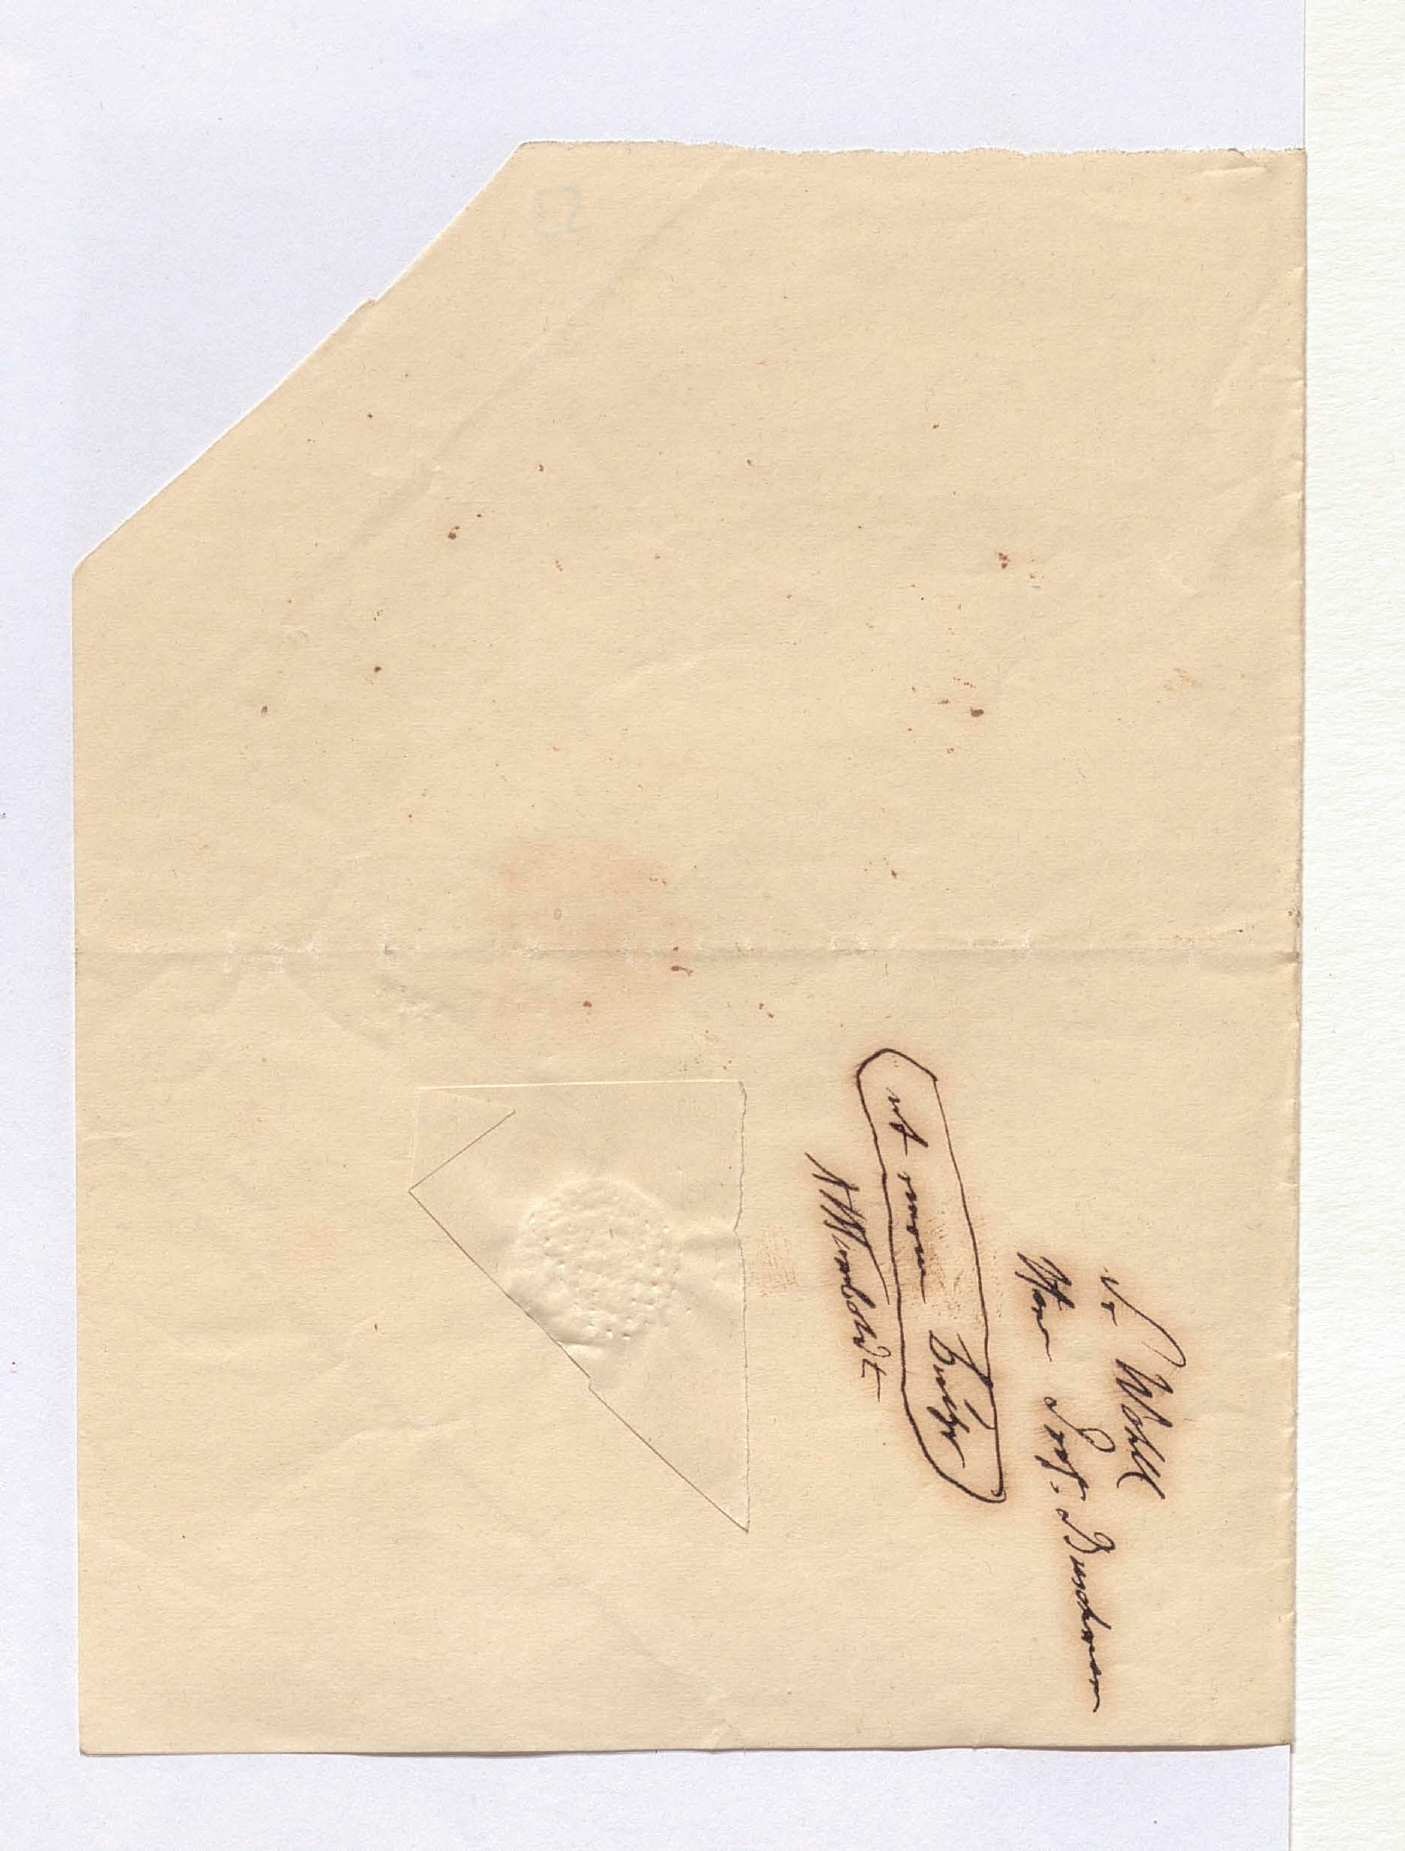 Sr Wohll
Herr Prof. Buschmann
mit einem Buche
AHumboldt